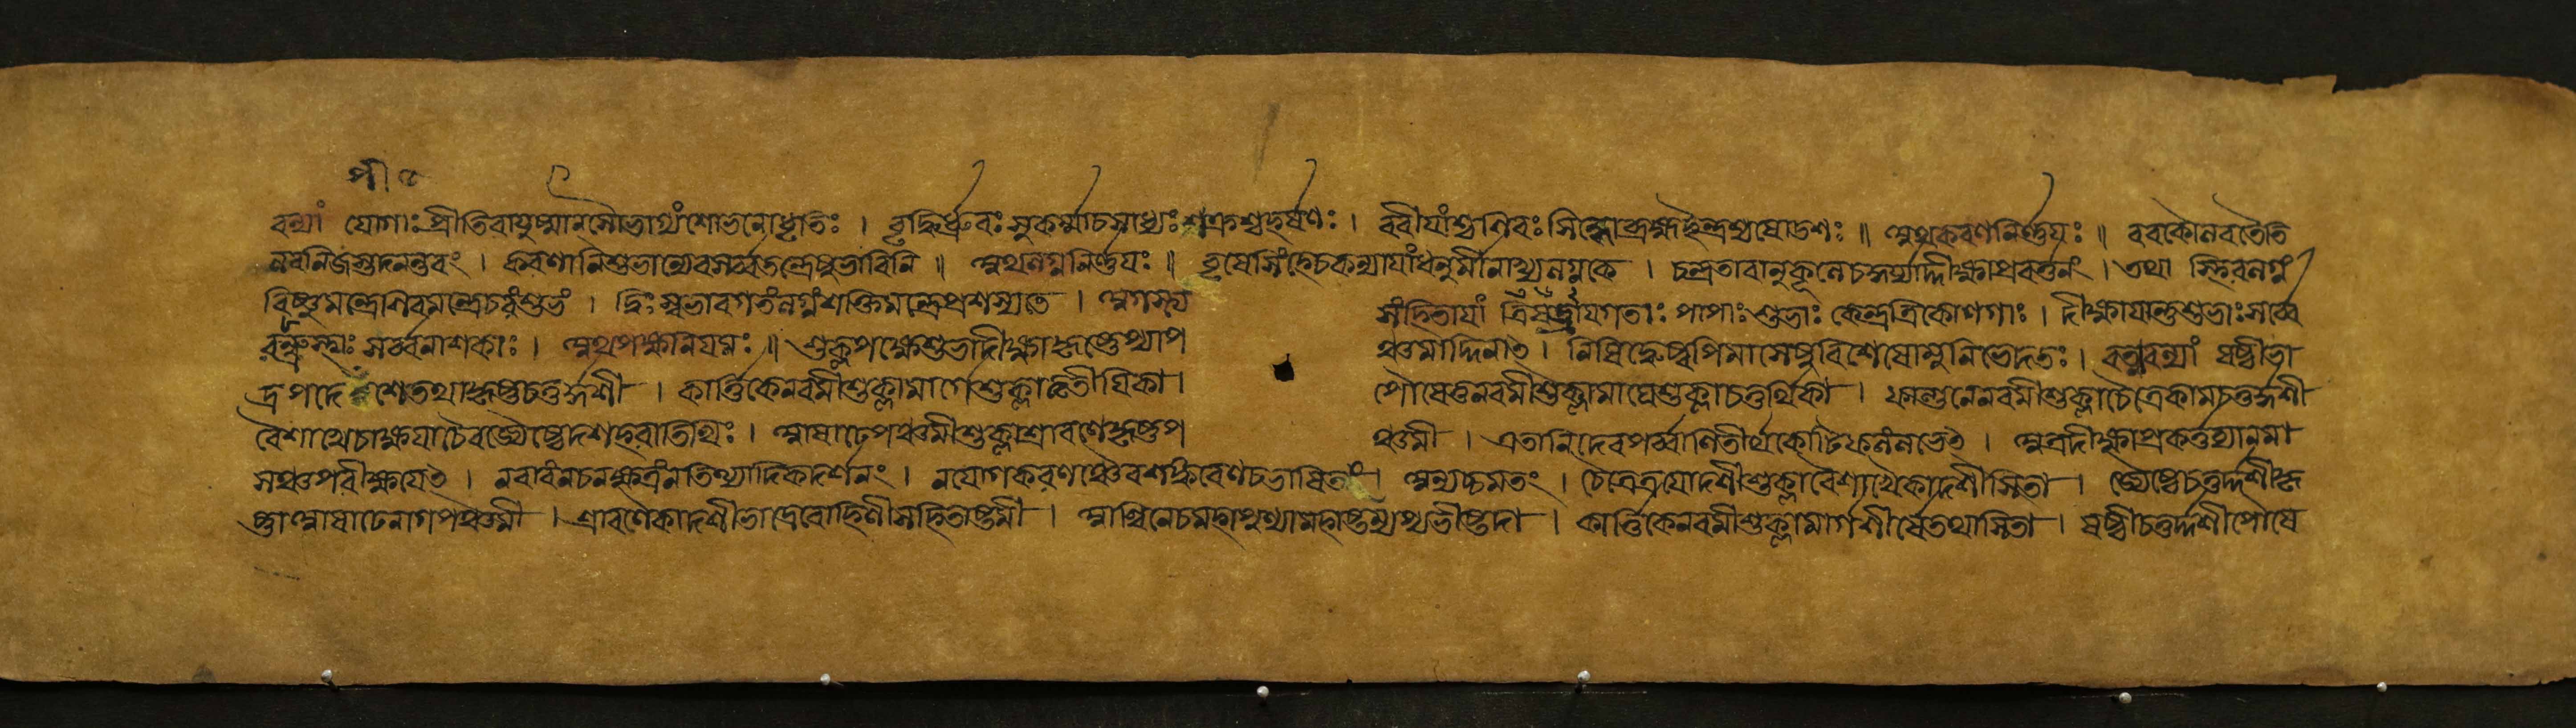 পী ৩
রত্ন্যাং যোগাঃ প্রীতিরায়ুষ্মানসৌভাগ্যংশোভনোধৃতিঃ । বৃদ্ধির্ধ্রুবঃ সুকর্ম্মাচসাধ্যঃ শুক্রশ্চহর্ষণঃ । বরীয়াংশ্চশিবঃ সিদ্ধোব্রহ্মইন্দ্রশ্চষোডশঃ ॥ অথকরণনির্ণ্ণয়ঃ ॥ ববকৌলবতৈতি
লবনিজস্তুদনন্তরং । করণানিশুভান্যেবসর্ব্বতন্ত্রেষুভাবিনি ॥ অথলগ্ননির্ণ্ণয়ঃ ॥ বৃষেসিংহেচকন্যায়াংধনুর্মীনাখ্যলগ্নকে । চন্দ্রতারানুকূলেচকুর্য্যাদ্দীক্ষাপ্রবর্ত্তনং । তথা স্থিরলগ্নং
বিষ্ণুমন্ত্রেশিবমন্ত্রেচরংশুভং । দ্বিঃস্বভাবগতংলগ্নংশক্তিমন্ত্রেপ্রশস্যতে । অগস্ত্য সংহিতায়াং ত্রিষড়ায়গতাঃ পাপাঃ শুভাঃ কেন্দ্রত্রিকোণগাঃ । দীক্ষায়ান্তুশুভাঃসর্ব্বে
রন্ধ্রস্থাঃ সর্ব্বনাশকাঃ । অথপক্ষনিয়মঃ ॥ শুক্লপক্ষেশুভাদীক্ষাকৃষ্ণেপ্যাপ ঞ্চমাদ্দিনাৎ । নিষিদ্ধেষ্বপিমাসেষুবিশেষোমুনিভোদতঃ । রত্নাবল্যাং ষষ্ঠীভা
দ্রপদে শেতথাকৃষ্ণচতুর্দ্দশী । কার্ত্তিকেনবমীশুক্লামার্গেশুক্লাতৃতীয়িকা । পৌষেতুনবমীশুক্লামাঘেশুক্লাচতুর্থিকা । ফাল্গুনেনবমীশুক্লাচৈত্রেকামচতুর্দ্দশী
বৈশাখেচাক্ষয়াচৈবজ্যৈষ্ঠেদশহরাতিথিঃ । আষাঢেপঞ্চমীশুক্লাশ্রাবণেকৃষ্ণপ ঞ্চমী । এতানিদেবপর্ব্বাণিতীর্থকোটিফলংলভেৎ । অত্রদীক্ষাপ্রকর্ত্তব্যানমা
সঞ্চপরীক্ষয়েৎ । নবারংনচনক্ষত্রংনতিথ্যাদিকদর্শনং । নযোগকরণঞ্চৈবশঙ্করেণচভাষিতং । অন্যচ্চমতং । চৈত্রেত্রয়োদশীশুক্লাবৈশাখৈকাদশীসিতা । জ্যৈষ্ঠেচতুর্দ্দশীকৃ
ষ্ণাআষাঢেনাগপঞ্চমী । শ্রাবণৈকাদশীভাদ্রেরোহিণীসহিতাষ্টমী । আশ্বিনেচমহাপুণ্যামহাষ্টম্যপ্যভীষ্টদা । কার্ত্তিকেনবমীশুক্লামার্গশীর্ষেতথাসিতা । ষষ্ঠীচতুর্দ্দশীপৌষে